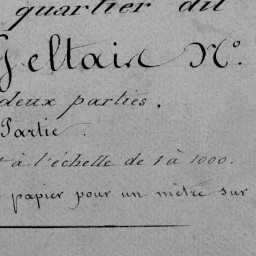 quartier dit
Geltain N°
deux parties.
Partie.
à l'échelle de 1 à 1000.
papier pour un mètre sur